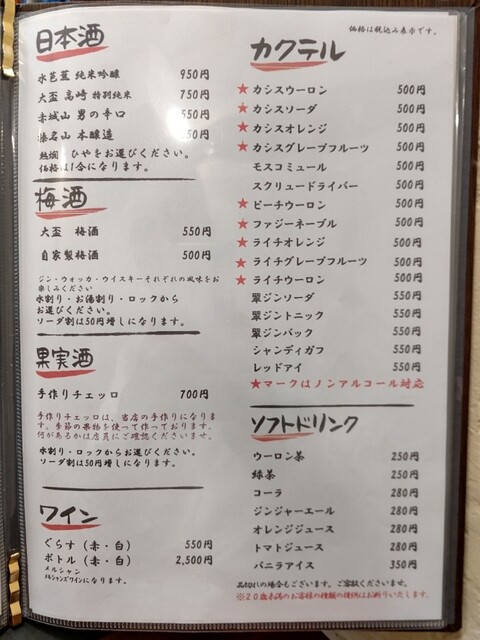 日本酒
水芭蕉 純米吟醸 950円
大盃 高崎 特別純米 750円
赤城山 男の辛口 550円
榛名山 本醸造 550円
熱燗 ひやをお選びください。
価格は1合になります。
梅酒
大盃 梅酒 550円
自家製梅酒 500円
ジン・ウォッカ・ウイスキーそれぞれの風味をお
楽しみください
水割り・お湯割り・ロックから
お選びください。
ソーダ割は50円増しになります。
果実酒
手作りチェッロ 700円
手作りチェッロは、当店の手作りになりま
す。季節の果物を使って作っております。
何があるかは店員にご確認くださいませ。
水割り・ロックからお選びください。
ソーダ割は50円増しになります。
ワイン
ぐらす（赤・白） 550円
ボトル（赤・白） 2,500円
メルシャン
メルシャンズワインになります。
価格は税込み表示です。
カクテル
★カシスウーロン 500円
★カシスソーダ 500円
★カシスオレンジ 500円
★カシスグレープフルーツ 500円
モスコミュール 500円
スクリュードライバー 500円
★ピーチウーロン 500円
★ファジーネーブル 500円
★ライチオレンジ 500円
★ライチグレープフルーツ 500円
★ライチウーロン 500円
翠ジンソーダ 550円
翠ジントニック 550円
翠ジンバック 550円
シャンディガフ 550円
レッドアイ 550円
★マークはノンアルコール対応
ソフトドリンク
ウーロン茶 250円
緑茶 250円
コーラ 280円
ジンジャーエール 280円
オレンジジュース 280円
トマトジュース 280円
バニラアイス 350円
品切れの場合もございます。ご容赦くださいませ。
※20歳未満のお客様の酒類の提供はお断りいたします。